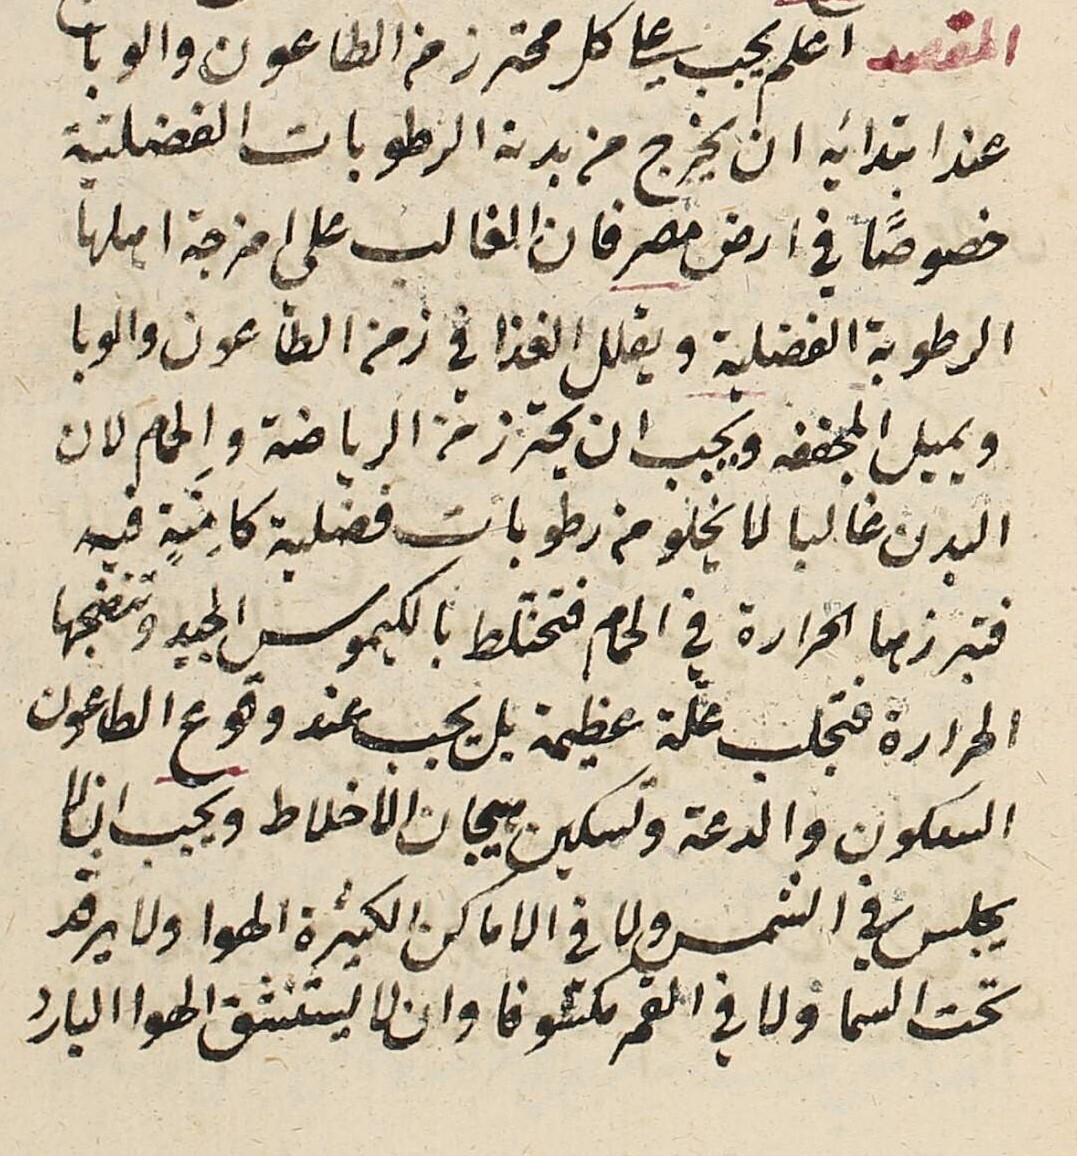 المقصد اعلم يجب على كل محترز من الطاعون والوبا
عند ابتدائه ان يخرج من بدنه الرطوبات الفضلية
خصوصًا في ارض مصر فان الغالب على امزجة اهلها
الرطوبة الفضلية ويقلل الغذا في زمن الطاعون والوبا
ويميل المجففه ويجب ان يحترز من الرياضة والحمام لان
البدن غالبا لا يخلو من رطوبات فضلية كامنةٍ فيه
فتبرزها الحرارة في الحمام فتختلط بالكيموس الجيد وتنضجها
الحرارة فتجلب علّة عظيمة بل يجب عند وقوع الطاعون
السكون والدعة وتسكين هيجان الأخلاط ويجب ان لا
يجلس في الشمس ولا في الاماكن الكثيرة الهوا ولا يرقد
تحت السما ولا في القمر مكشوفا وان لا يستنشق الهوا البارد